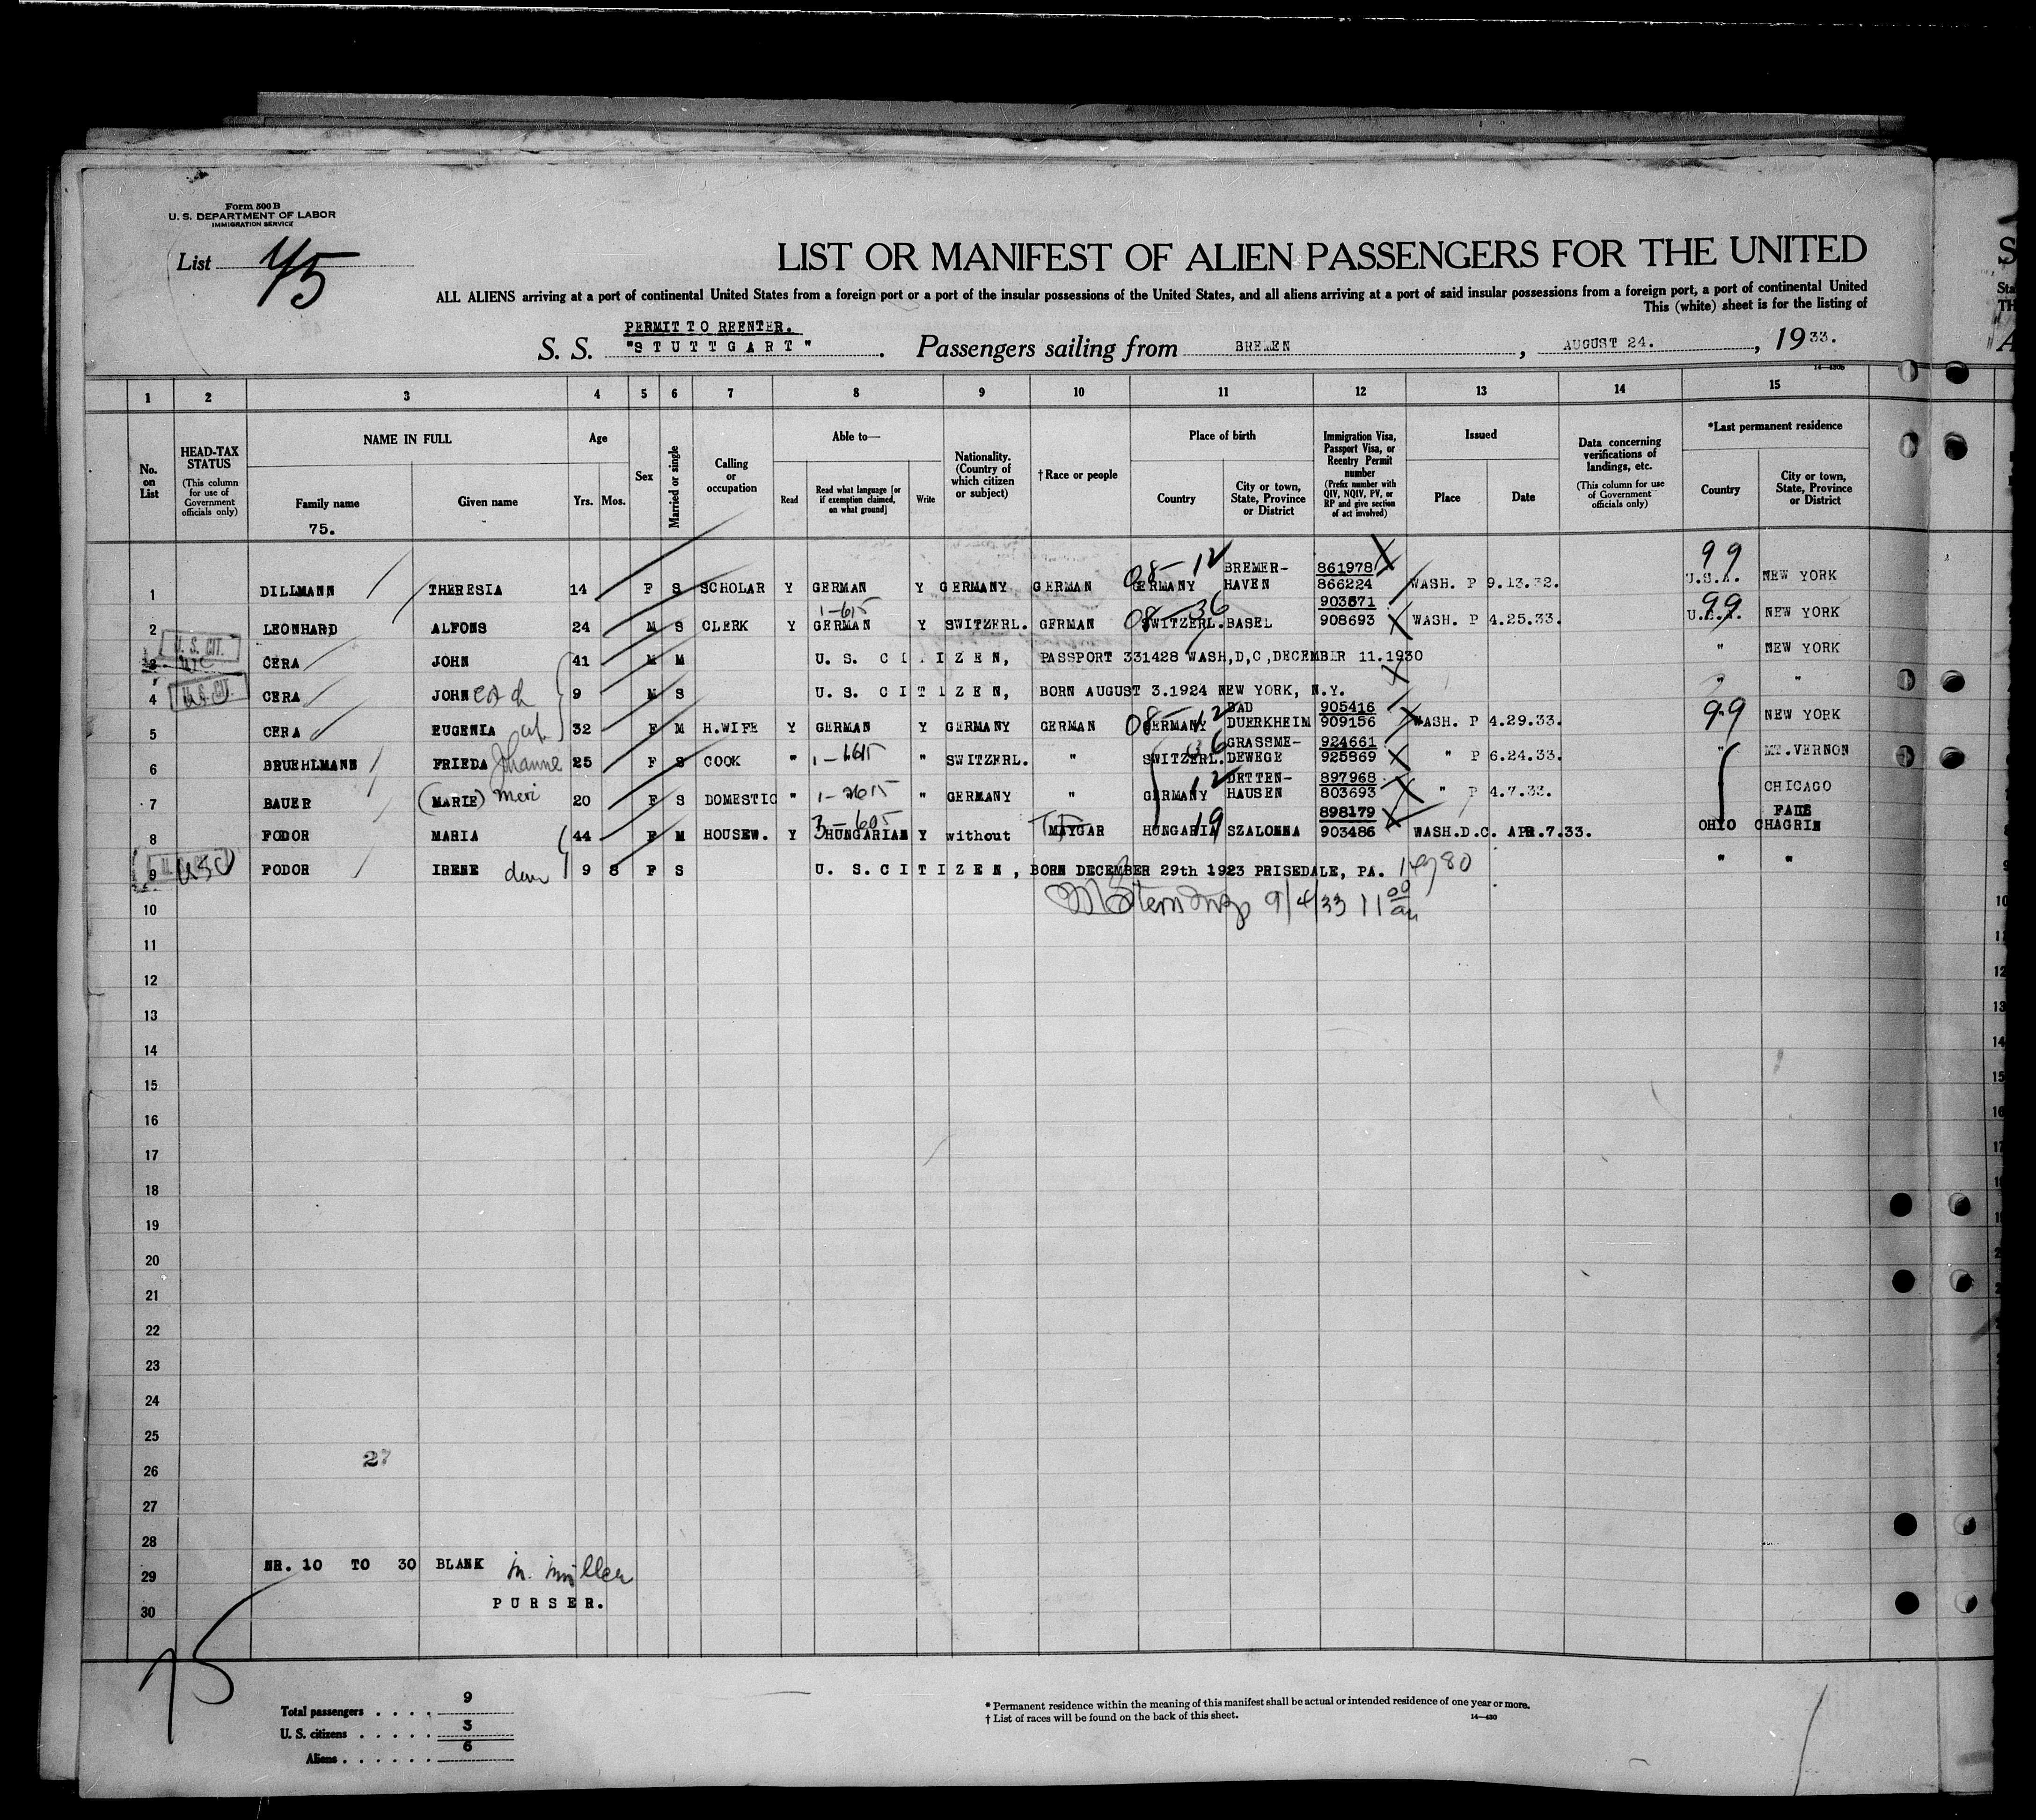 Form 500 B
U. S. DEPARTMENT OF LABOR
IMMIGRATION SERVICE
List 75
LIST OR MANIFEST OF ALIEN PASSENGERS FOR THE UNITED
ALL ALIENS arriving at a port of continental United States from a foreign port or a port of the insular possessions of the United States, and all aliens arriving at a port of said insular possessions from a foreign port, a port of continental United
This (white) sheet is for the listing of
PERMIT TO REENTER.
S. S. "STUTTGART". Passengers sailing from BREMEN, AUGUST 24., 1933.
1 2 3 4 5 6 7 8 9 10 11 12 13 14 15
No. on List
HEAD-TAX STATUS (This column for use of Government officials only)
NAME IN FULL
Family name
Given name
75.
Age
Yrs. Mos.
Sex
Married or single
Calling or occupation
Able to—
Read
Read what language [or if exemption claimed, on what ground]
Write
Nationality. (Country of which citizen or subject)
†Race or people
Place of birth
Country
City or town, State, Province or District
Immigration Visa, Passport Visa, or Reentry Permit number (Prefix number with QIV, NQIV, PV, or RP and give section of act involved)
Issued
Place
Date
Data concerning verifications of landings, etc. (This column for use of Government officials only)
*Last permanent residence
Country
City or town, State, Province or District
1 DILLMANN THERESIA 14 F S SCHOLAR Y GERMAN Y GERMANY GERMAN 08-12 GERMANY BREMER-HAVEN 861978 866224 WASH. P 9.13.32. 99 U.S.A. NEW YORK
2 LEONHARD ALFONS 24 M S CLERK Y GERMAN Y SWITZERL. GERMAN 08-36 SWITZERL. BASEL 908693 WASH. P 4.25.33. 99 U.S.A. NEW YORK
3 U. S. CIT. CERA JOHN 41 M M U. S. CITIZEN, PASSPORT 331428 WASH,D,C,DECEMBER 11.1930 " NEW YORK
4 U.S. CIT. CERA JOHN 9 M S U. S. CITIZEN, BORN AUGUST 3.1924 NEW YORK, N.Y. " "
5 CERA EUGENIA 32 F M H.WIFE Y GERMAN Y GERMANY GERMAN 08-12 GERMANY BAD DUERKHEIM 905416 909156 WASH. P 4.29.33. 99 NEW YORK
6 BRUEHLMANN FRIEDA Johanne 25 F S COOK " " SWITZERL. " 36 SWITZERL. GRASSME-DEWEGE 924661 925869 " P 6.24.33. " MT.VERNON
7 BAUER (MARIE) Meri 20 F S DOMESTIC " " GERMANY " 12 GERMANY DETTEN-HAUSEN 897968 803693 " P 4.7.33. CHICAGO
8 FODOR MARIA 44 F M HOUSEW. Y 3-605 HUNGARIAN Y without MAYGAR 19 HUNGARIA SZALONNA 898179 903486 WASH.D.C. APR.7.33. OHIO CHAGRIN
9 USC FODOR IRENE 9 8 F S U. S.CITIZEN, BORN DECEMBER 29th 1923 PRISEDALE, PA. " "
9/4/33 11 00 am
10
11
12
13
14
15
16
17
18
19
20
21
22
23
24
25
26
27
28
29
30
27
NR. 10 TO 30 BLANK
PURSER.
75
Total passengers . . . . 9
U. S. citizens . . . . . 3
Aliens . . . . . . 6
* Permanent residence within the meaning of this manifest shall be actual or intended residence of one year or more.
† List of races will be found on the back of this sheet.
14—430